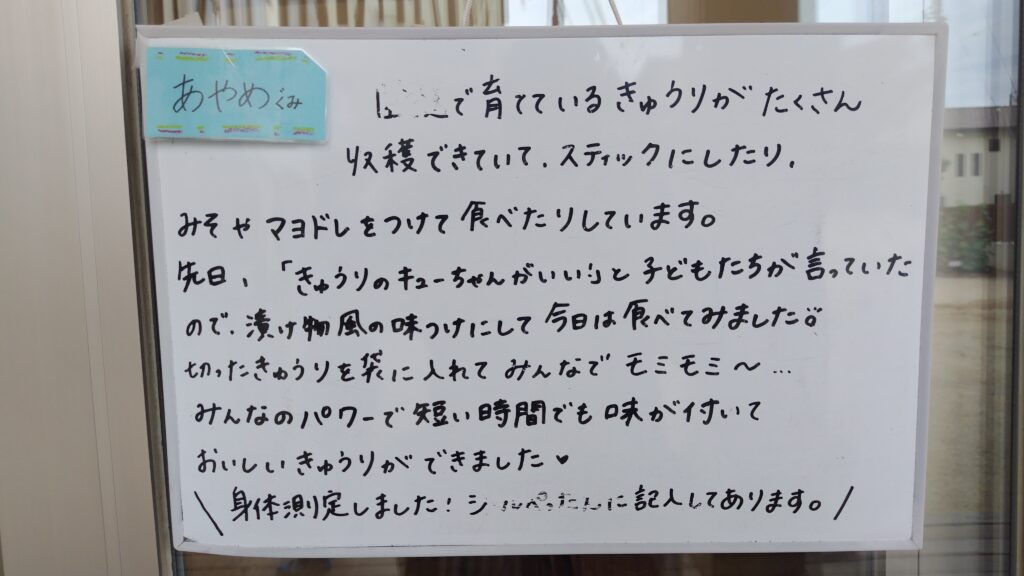 あやめぐみ
で育てているきゅうりがたくさん
収穫できていて、スティックにしたり、
みそやマヨドレをつけて食べたりしています。
先日、「きゅうりのキューちゃんがいい!」と子どもたちが言っていた
ので、漬け物風の味つけにして今日は食べてみました。
切ったきゅうりを袋に入れてみんなでモミモミ〜…
みんなのパワーで短い時間でも味が付いて
おいしいきゅうりができました♥
\ 身体測定しました! に記入してあります。/